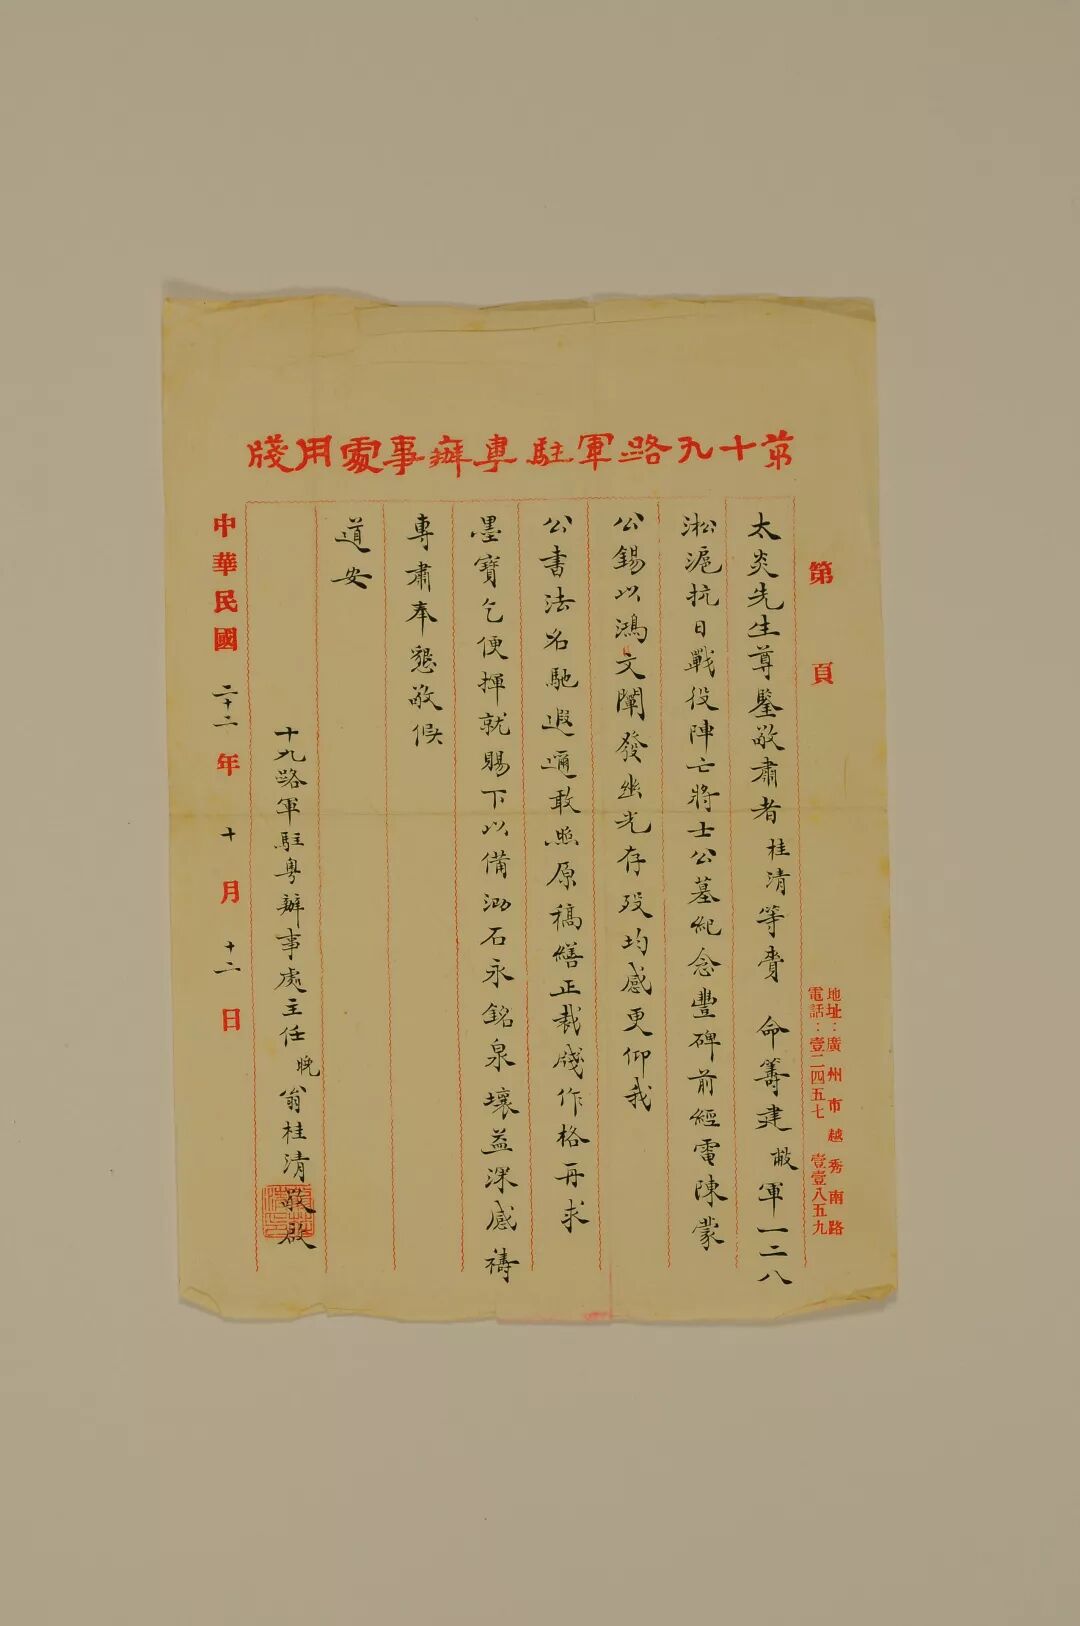 第十九路軍駐粵辦事處用牋
第 頁
地址：廣州市越秀南路
電話：壹二四五七 壹壹八五九
太炎先生尊鑒敬肅者桂清等賫 命籌建敝軍一二八
淞滬抗日戰役陣亡將士公墓紀念豐碑前經電陳蒙
公錫以鴻文闡發幽光存歿均感更仰我
公書法名馳遐邇敢照原稿繕正裁牋作格再求
墨寶乞便揮就賜下以備泐石永銘泉壤益深感禱
專肅奉懇敬候
道安
十九路軍駐粵辦事處主任晚翁桂清敬啟
中華民國二十二年十月十二日